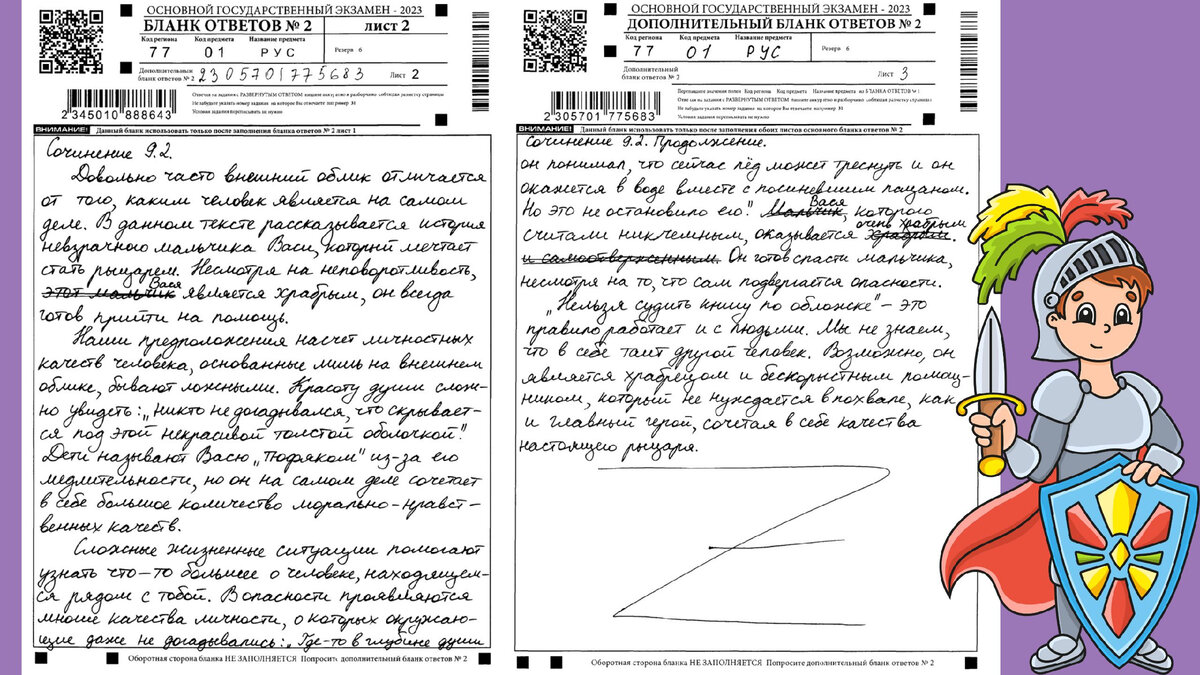 ОСНОВНОЙ ГОСУДАРСТВЕННЫЙ ЭКЗАМЕН - 2023
БЛАНК ОТВЕТОВ № 2 лист 2
Код региона Код предмета Название предмета
77 01 РУС Резерв 6
Дополнительный бланк ответов № 2 2305701775683 Лист 2
Ответы на задания с РАЗВЕРНУТЫМ ОТВЕТОМ пишите аккуратно и разборчиво, соблюдая разметку страницы
Не забудьте указать номер задания, на которое Вы отвечаете, например 31
Условия задания переписывать не нужно
2 345010 888643
ВНИМАНИЕ! Данный бланк использовать только после заполнения бланка ответов № 2 лист 1
Сочинение 9.2.
Довольно часто внешний облик отличается
от того, каким человек является на самом
деле. В данном тексте рассказывается история
невзрачного мальчика Васи, который мечтает
стать рыцарем. Несмотря на неповоротливость,
этот мальчик Вася является храбрым, он всегда
готов прийти на помощь.
Наши предположения насчёт личностных
качеств человека, основанные лишь на внешнем
облике, бывают ложными. Красоту души слож-
но увидеть: „Никто не догадывался, что скрывает-
ся под этой некрасивой толстой оболочкой".
Дети называют Васю „Тюфяком" из-за его
медлительности, но он на самом деле сочетает
в себе большое количество морально-нравст-
венных качеств.
Сложные жизненные ситуации помогают
узнать что-то большее о человеке, находящем-
ся рядом с тобой. В опасности проявляются
многие качества личности, о которых окружаю-
щие даже не догадывались: „Где-то в глубине души
Оборотная сторона бланка НЕ ЗАПОЛНЯЕТСЯ Попросите дополнительный бланк ответов № 2
ОСНОВНОЙ ГОСУДАРСТВЕННЫЙ ЭКЗАМЕН - 2023
ДОПОЛНИТЕЛЬНЫЙ БЛАНК ОТВЕТОВ № 2
Код региона Код предмета Название предмета
77 01 РУС Резерв 6
Дополнительный бланк ответов № 2 Лист 3
Перепишите значения полей Код региона Код предмета Название предмета из БЛАНКА ОТВЕТОВ № 1
Не забудьте указать номер задания, на которое Вы отвечаете, например 31
Условия задания переписывать не нужно
2 305701 775683
ВНИМАНИЕ! Данный бланк использовать только после заполнения обоих листов основного бланка ответов № 2
Сочинение 9.2. Продолжение.
он понимал, что сейчас лёд может треснуть и он
окажется в воде вместе с посиневшим пацаном.
Но это не остановило его". Мальчик Вася, которого
считали никчемным, оказывается храбрым очень храбрым.
и самоотверженным. Он готов спасти мальчика,
несмотря на то, что сам подвергается опасности.
„Нельзя судить книгу по обложке" – это
правило работает и с людьми. Мы не знаем,
что в себе таит другой человек. Возможно, он
является храбрецом и бескорыстным помощ-
ником, который не нуждается в похвале, как
и главный герой, сочетая в себе качества
настоящего рыцаря.
Оборотная сторона бланка НЕ ЗАПОЛНЯЕТСЯ Попросите дополнительный бланк ответов № 2